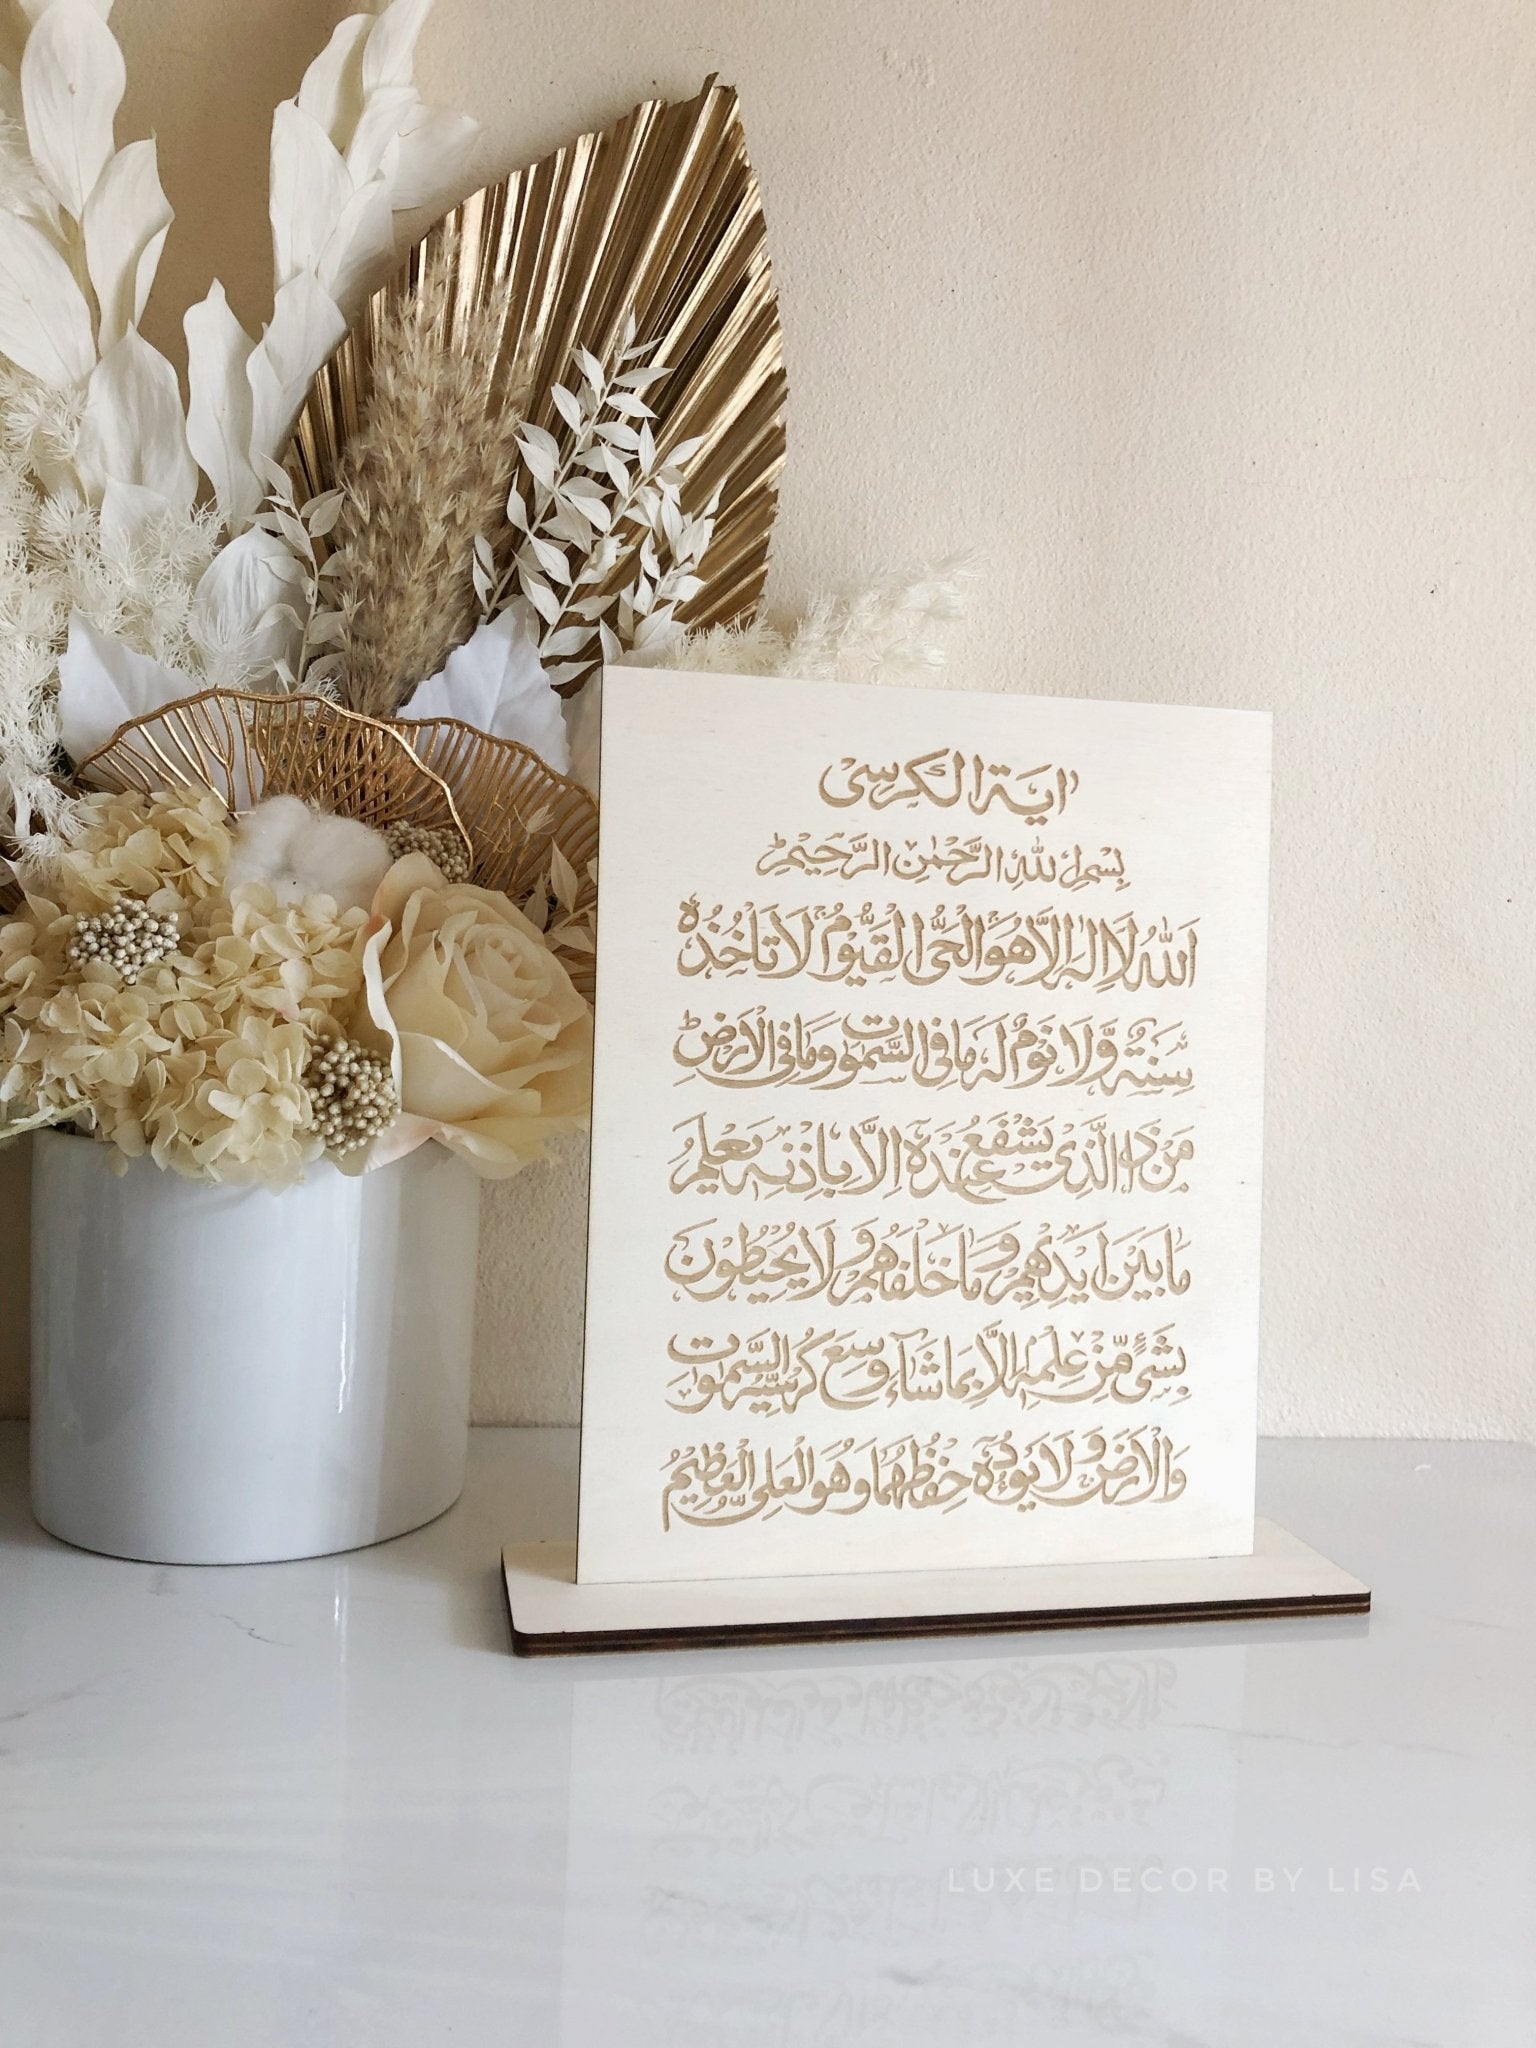 اية الكرسى
بِسْمِ اللهِ الرَّحْمٰنِ الرَّحِيْمِ
اَللّٰهُ لَا اِلٰهَ اِلَّا هُوَ الْحَىُّ الْقَيُّوْمُ لَا تَاْخُذُهٗ
سِنَةٌ وَّلَا نَوْمٌ لَهٗ مَا فِى السَّمٰوٰتِ وَمَا فِى الْاَرْضِ
مَنْ ذَا الَّذِىْ يَشْفَعُ عِنْدَهٗ اِلَّا بِاِذْنِهٖ يَعْلَمُ
مَا بَيْنَ اَيْدِيْهِمْ وَمَا خَلْفَهُمْ وَلَا يُحِيْطُوْنَ
بِشَىْءٍ مِّنْ عِلْمِهٖ اِلَّا بِمَا شَآءَ وَسِعَ كُرْسِيُّهُ السَّمٰوٰتِ
وَالْاَرْضَ وَلَا يَـُٔوْدُهٗ حِفْظُهُمَا وَهُوَ الْعَلِىُّ الْعَظِيْمُ
LUXE DECOR BY LISA